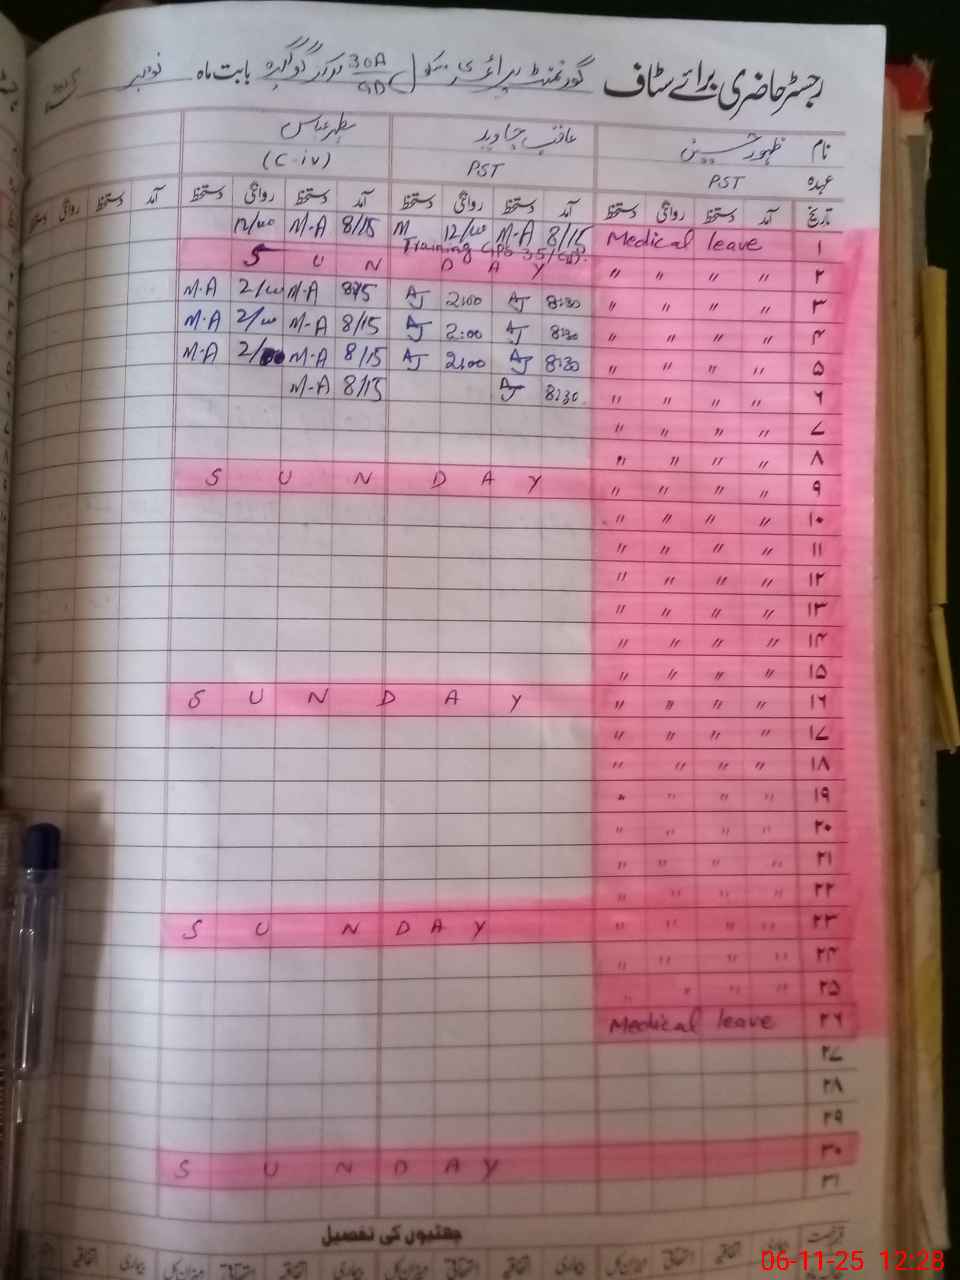 رجسٹر حاضری برائے سٹاف گورنمنٹ پرائمری سکول 30A/GD بابت ماہ نومبر
نام ظہور حسین عاقب جاوید مظہر عباس
عہدہ PST PST (C-iv)
تاریخ آمد دستخط روانگی دستخط آمد دستخط روانگی دستخط آمد دستخط روانگی دستخط آمد دستخط روانگی دستخط
۱ Medical leave 8/15 M-A 12/00 M 8/15 M-A 12/00
Training GPS 35/GD.
۲ " " " " S U N D A Y
۳ " " " " 8:30 AJ 2:00 AJ 8/15 M-A 2/00 M-A
۴ " " " " 8:30 AJ 2:00 AJ 8/15 M-A 2/00 M-A
۵ " " " " 8:30 AJ 2:00 AJ 8/15 M-A 2/00 M-A
۶ " " " " 8:30 AJ 8/15 M-A
۷ " " " "
۸ " " " "
۹ " " " " S U N D A Y
۱۰ " " " "
۱۱ " " " "
۱۲ " " " "
۱۳ " " " "
۱۴ " " " "
۱۵ " " " "
۱۶ " " " " S U N D A Y
۱۷ " " " "
۱۸ " " " "
۱۹ " " " "
۲۰ " " " "
۲۱ " " " "
۲۲ " " " "
۲۳ " " " " S U N D A Y
۲۴ " " " "
۲۵ " " " "
۲۶ Medical leave
۲۷
۲۸
۲۹
۳۰ S U N D A Y
۳۱
چھٹیوں کی تفصیل
بیماری اتفاقیہ استحقاقی میزان کل بیماری اتفاقیہ استحقاقی میزان کل بیماری اتفاقیہ استحقاقی میزان کل بیماری اتفاقیہ
06-11-25 12:28